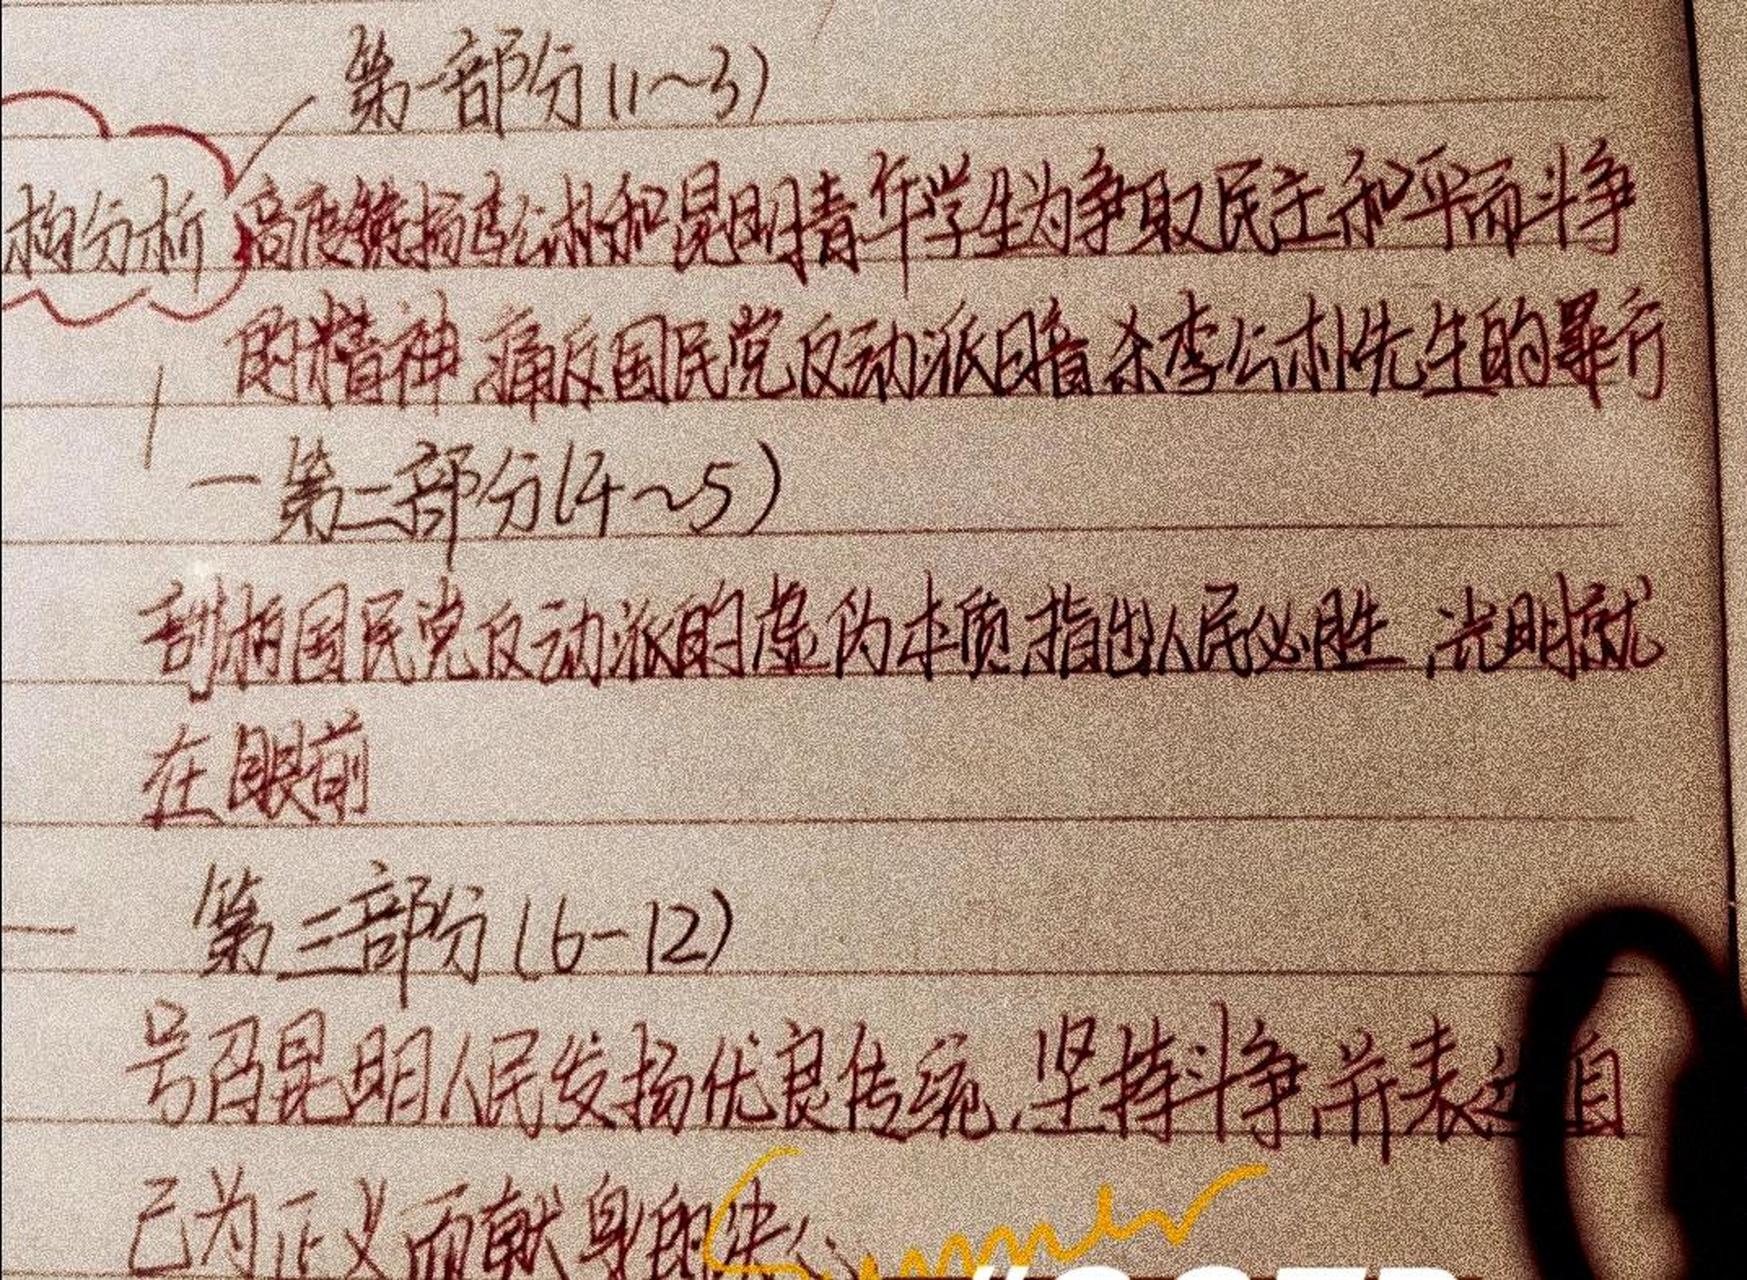 第一部分(1~3)
构分析
高度赞扬李公朴和昆明青年学生为争取民主和平而斗争
的精神,痛斥国民党反动派暗杀李公朴先生的罪行
一第二部分(4~5)
剖析国民党反动派的虚伪本质,指出人民必胜,光明就
在眼前
第三部分(6-12)
号召昆明人民发扬优良传统,坚持斗争,并表达自
己为正义而献身的决心
Summer